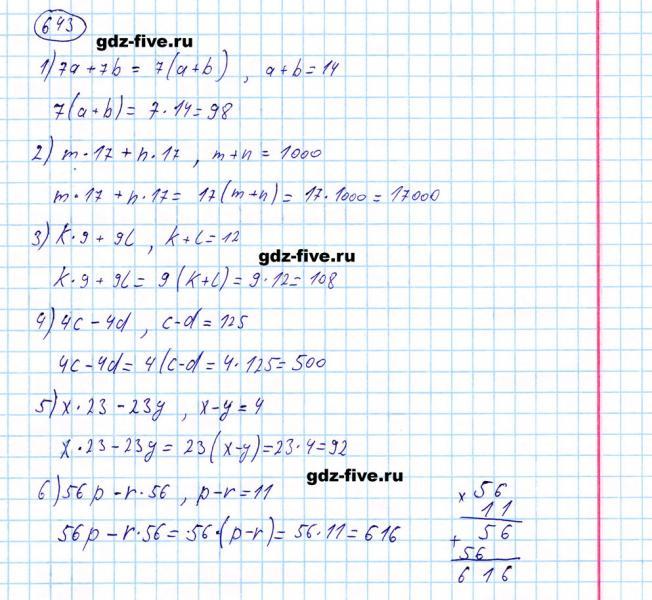 643
gdz-five.ru
1) 7a + 7b = 7(a+b) , a+b = 14
7(a+b) = 7·14 = 98
2) m·17 + n·17 , m+n = 1000
m·17 + n·17 = 17(m+n) = 17·1000 = 17000
3) k·9 + 9l , k+l = 12
gdz-five.ru
k·9 + 9l = 9(k+l) = 9·12 = 108
4) 4c - 4d , c-d = 125
4c - 4d = 4(c-d = 4·125 = 500
5) x·23 - 23y , x-y = 4
x·23 - 23y = 23(x-y) = 23·4 = 92
gdz-five.ru
6) 56p - r·56 , p-r = 11
56p - r·56 = 56·(p-r) = 56·11 = 616
x 56
11
+ 56
56
616